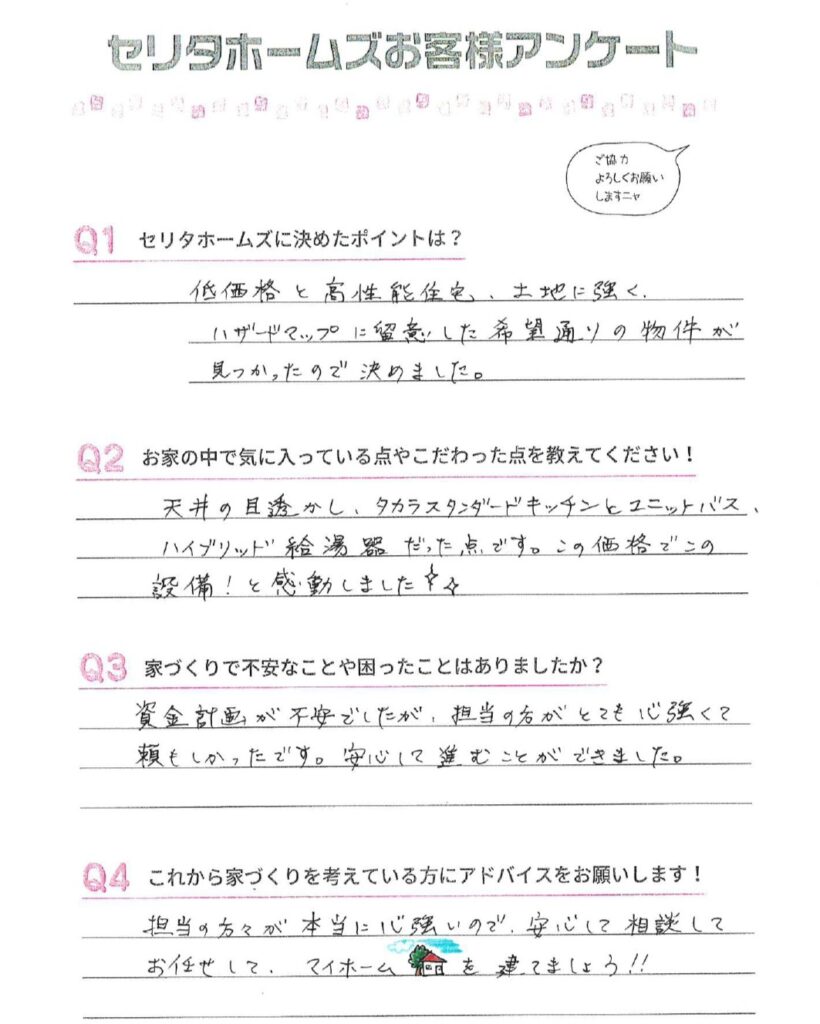 セリタホームズお客様アンケート
ご協力
よろしくお願い
しますニャ
Q1 セリタホームズに決めたポイントは？
低価格と高性能住宅、土地に強く、
ハザードマップに留意した希望通りの物件が
見つかったので決めました。
Q2 お家の中で気に入っている点やこだわった点を教えてください！
天井の目透かし、タカラスタンダードキッチンとユニットバス、
ハイブリッド給湯器だった点です。この価格でこの
設備！と感動しました
Q3 家づくりで不安なことや困ったことはありましたか？
資金計画が不安でしたが、担当の方がとても心強くて
頼もしかったです。安心して進むことができました。
Q4 これから家づくりを考えている方にアドバイスをお願いします！
担当の方々が本当に心強いので、安心して相談して
お任せして、マイホームを建てましょう!!